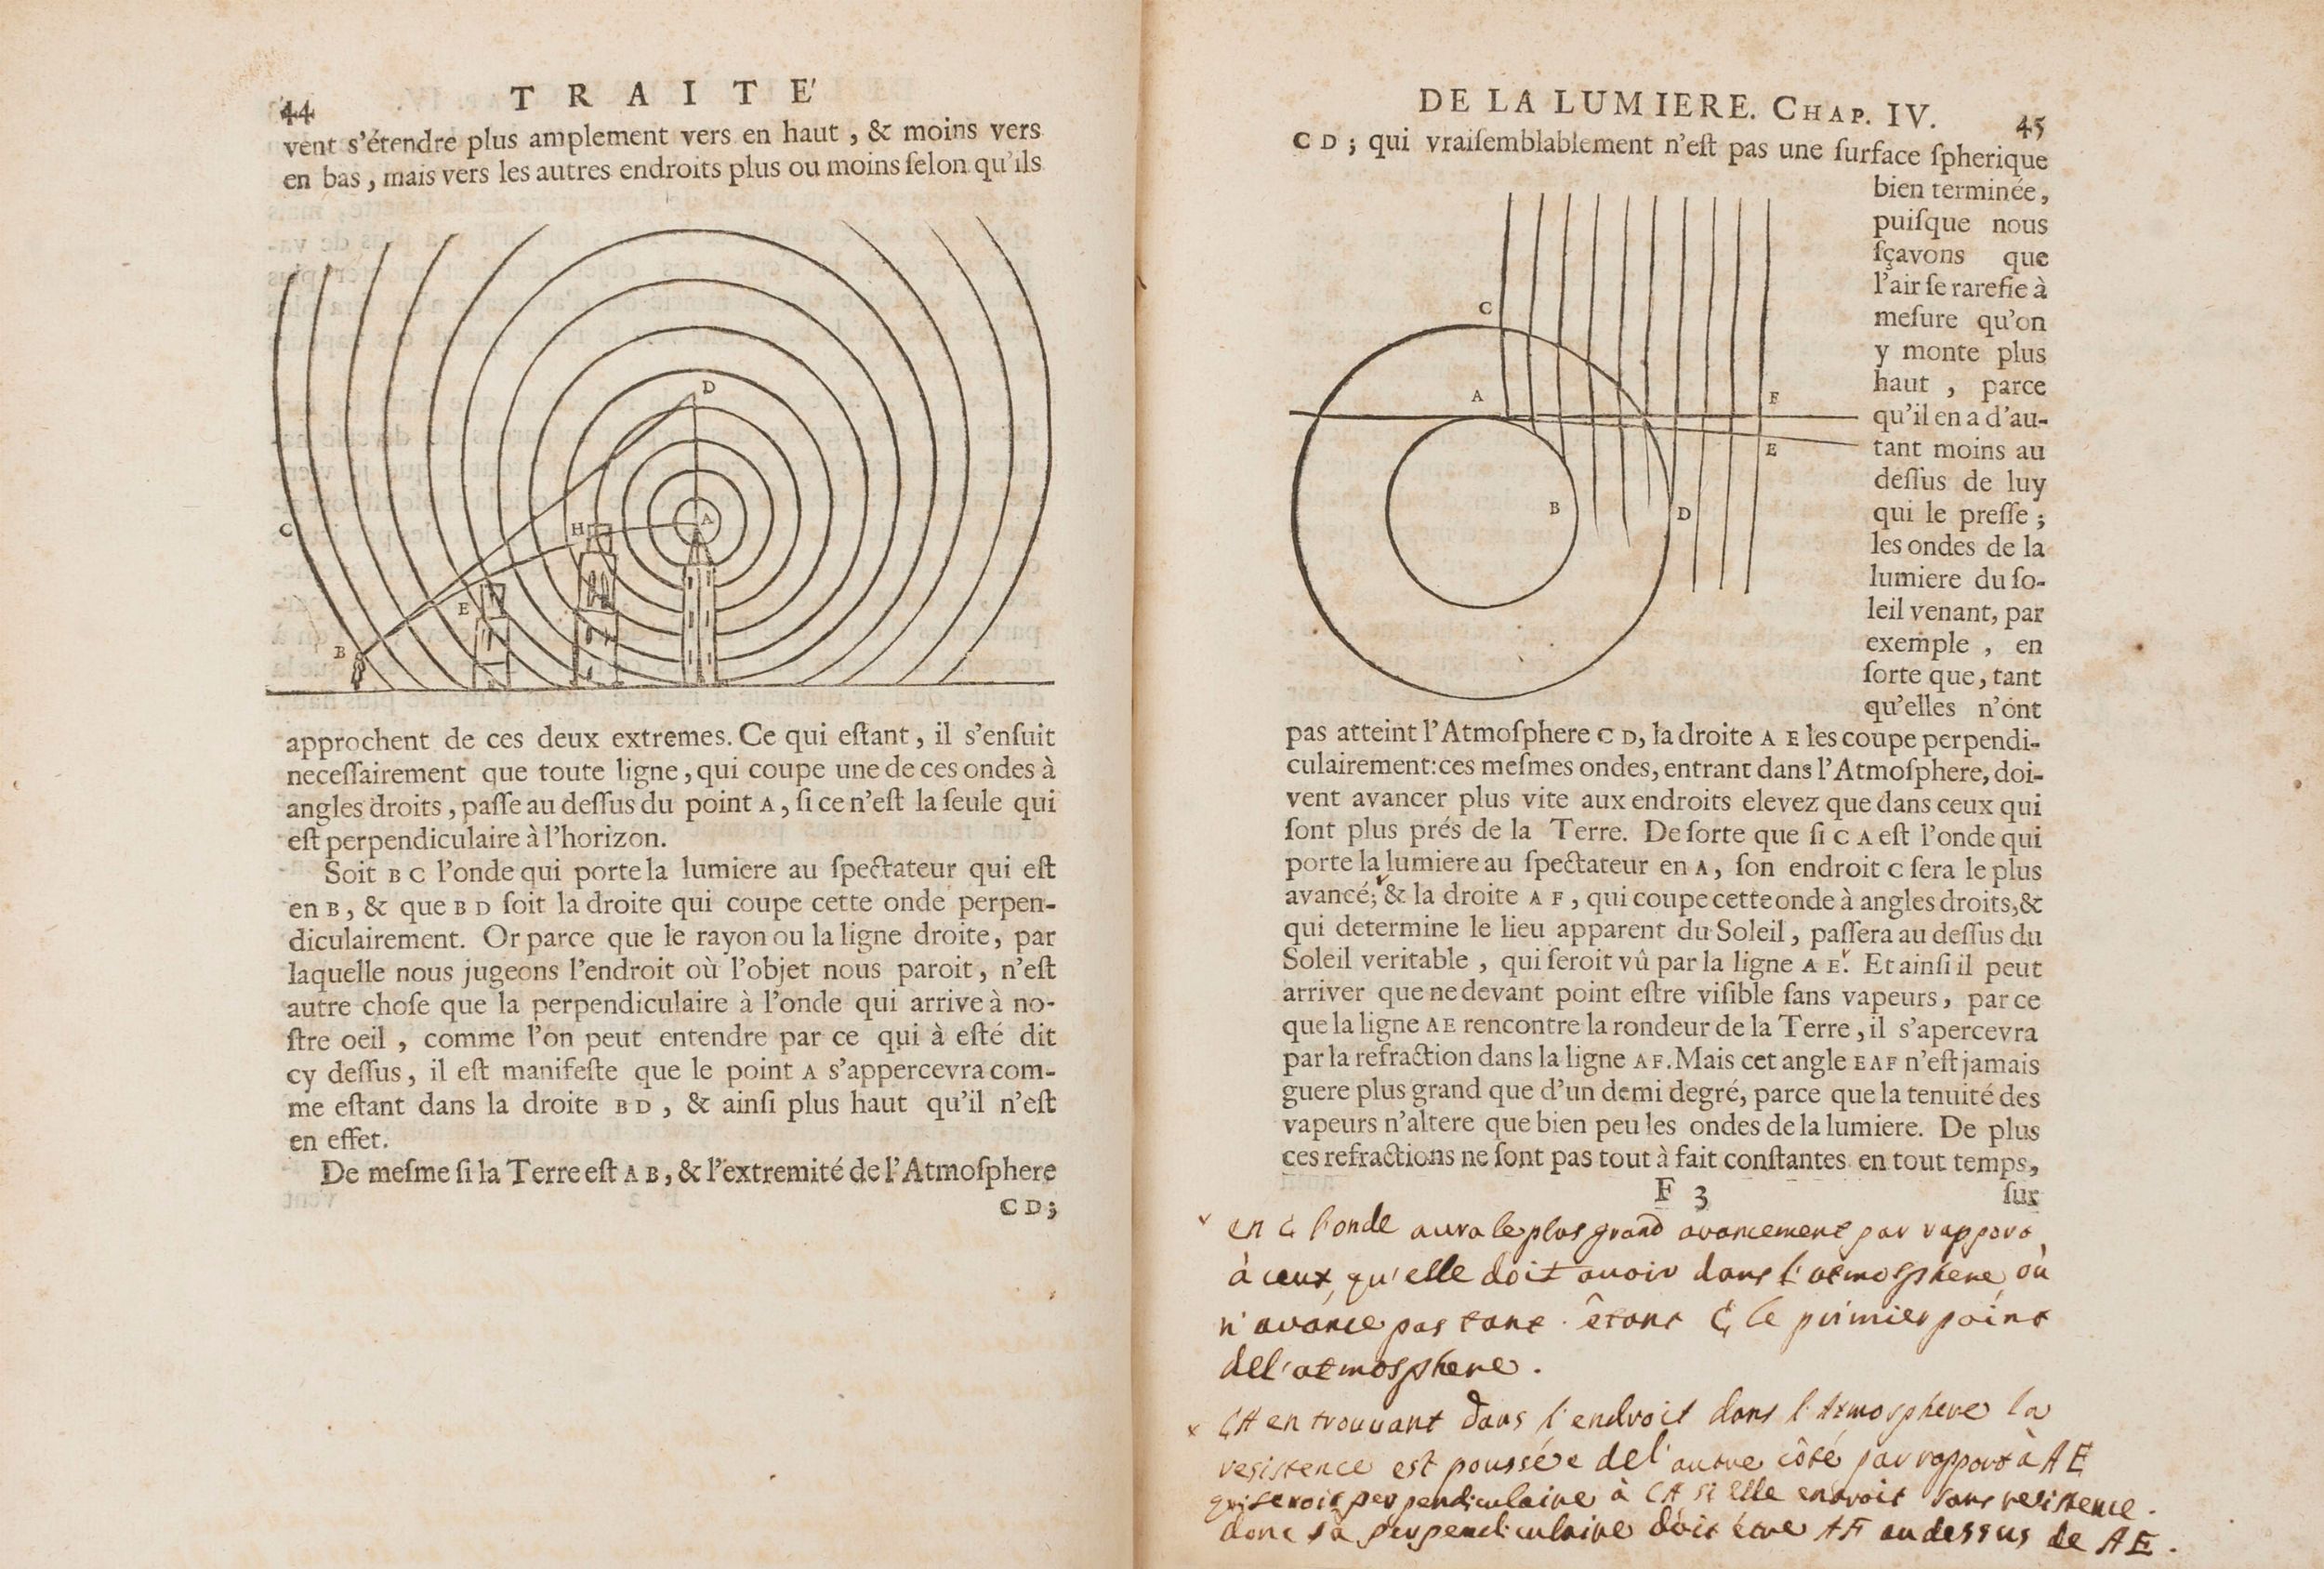 44
TRAITE'
vent s'étendre plus amplement vers en haut , & moins vers
en bas , mais vers les autres endroits plus ou moins ſelon qu'ils
D
A
H
C
E
B
approchent de ces deux extremes. Ce qui eſtant , il s'enſuit
neceſſairement que toute ligne, qui coupe une de ces ondes à
angles droits , paſſe au deſſus du point A , ſi ce n'eſt la ſeule qui
eſt perpendiculaire à l'horizon.
Soit B C l'onde qui porte la lumiere au ſpectateur qui eſt
en B , & que B D ſoit la droite qui coupe cette onde perpen-
diculairement. Or parce que le rayon ou la ligne droite, par
laquelle nous jugeons l'endroit où l'objet nous paroit, n'eſt
autre choſe que la perpendiculaire à l'onde qui arrive à no-
ſtre oeil , comme l'on peut entendre par ce qui à eſté dit
cy deſſus, il eſt manifeſte que le point A s'appercevra com-
me eſtant dans la droite B D , & ainſi plus haut qu'il n'eſt
en effet.
De meſme ſi la Terre eſt A B, & l'extremité de l'Atmoſphere
C D;
DE LA LUMIERE. CHAP. IV.
45
C D ; qui vraiſemblablement n'eſt pas une ſurface ſpherique
bien terminée,
puiſque nous
ſçavons que
l'air ſe rarefie à
meſure qu'on
y monte plus
haut , parce
qu'il en a d'au-
tant moins au
deſſus de luy
qui le preſſe ;
les ondes de la
lumiere du ſo-
leil venant, par
exemple , en
ſorte que, tant
qu'elles n'ont
C
A
F
E
B
D
pas atteint l'Atmoſphere C D, la droite A E les coupe perpendi-
culairement: ces meſmes ondes, entrant dans l'Atmoſphere, doi-
vent avancer plus vite aux endroits elevez que dans ceux qui
ſont plus prés de la Terre. De ſorte que ſi C A eſt l'onde qui
porte la lumiere au ſpectateur en A, ſon endroit C ſera le plus
avancé; & la droite A F, qui coupe cette onde à angles droits, &
qui determine le lieu apparent du Soleil , paſſera au deſſus du
Soleil veritable , qui ſeroit vû par la ligne A E. Et ainſi il peut
arriver que ne devant point eſtre viſible ſans vapeurs, par ce
que la ligne AE rencontre la rondeur de la Terre, il s'apercevra
par la refraction dans la ligne AF. Mais cet angle EAF n'eſt jamais
guere plus grand que d'un demi degré, parce que la tenuité des
vapeurs n'altere que bien peu les ondes de la lumiere. De plus
ces refractions ne ſont pas tout à fait conſtantes en tout temps,
F 3
ſur
en C l'onde aura le plus grand avancement par rapport
à ceux, qu'elle doit avoir dans l'atmosphere, où
n'avance pas tant étant C le primier point
de l'atmosphere.
x CA en trouvant dans l'endroit dans l'Atmosphere la
resistence est poussée de l'autre côté par rapport à AE
qui seroit perpendiculaire à CA si elle entroit sans resistence.
donc sa perpendiculaire doit étre AF au dessus de AE.